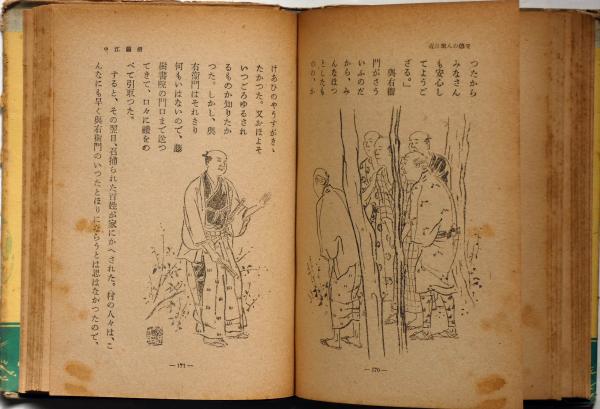 つたから
みなさん
も安心し
てようご
ざる。」
與右衞
門がさう
いふのだ
から、み
んなほつ
としたも
のの、か
—170—
中江藤樹
けあひのやうすがきゝ
たかつた。又おほよそ
いつごろゆるされ
るものか知りたか
つた。しかし、與
右衞門はそれきり
何もいはないので、藤
樹書院の門口まで送つ
てきて、口々に禮をの
べて引取つた。
すると、その翌日、召捕られた百姓が家にかへされた。村の人々は、こ
んなにも早く與右衞門のいつたとほりにならうとは思はなかつたので、
—171—